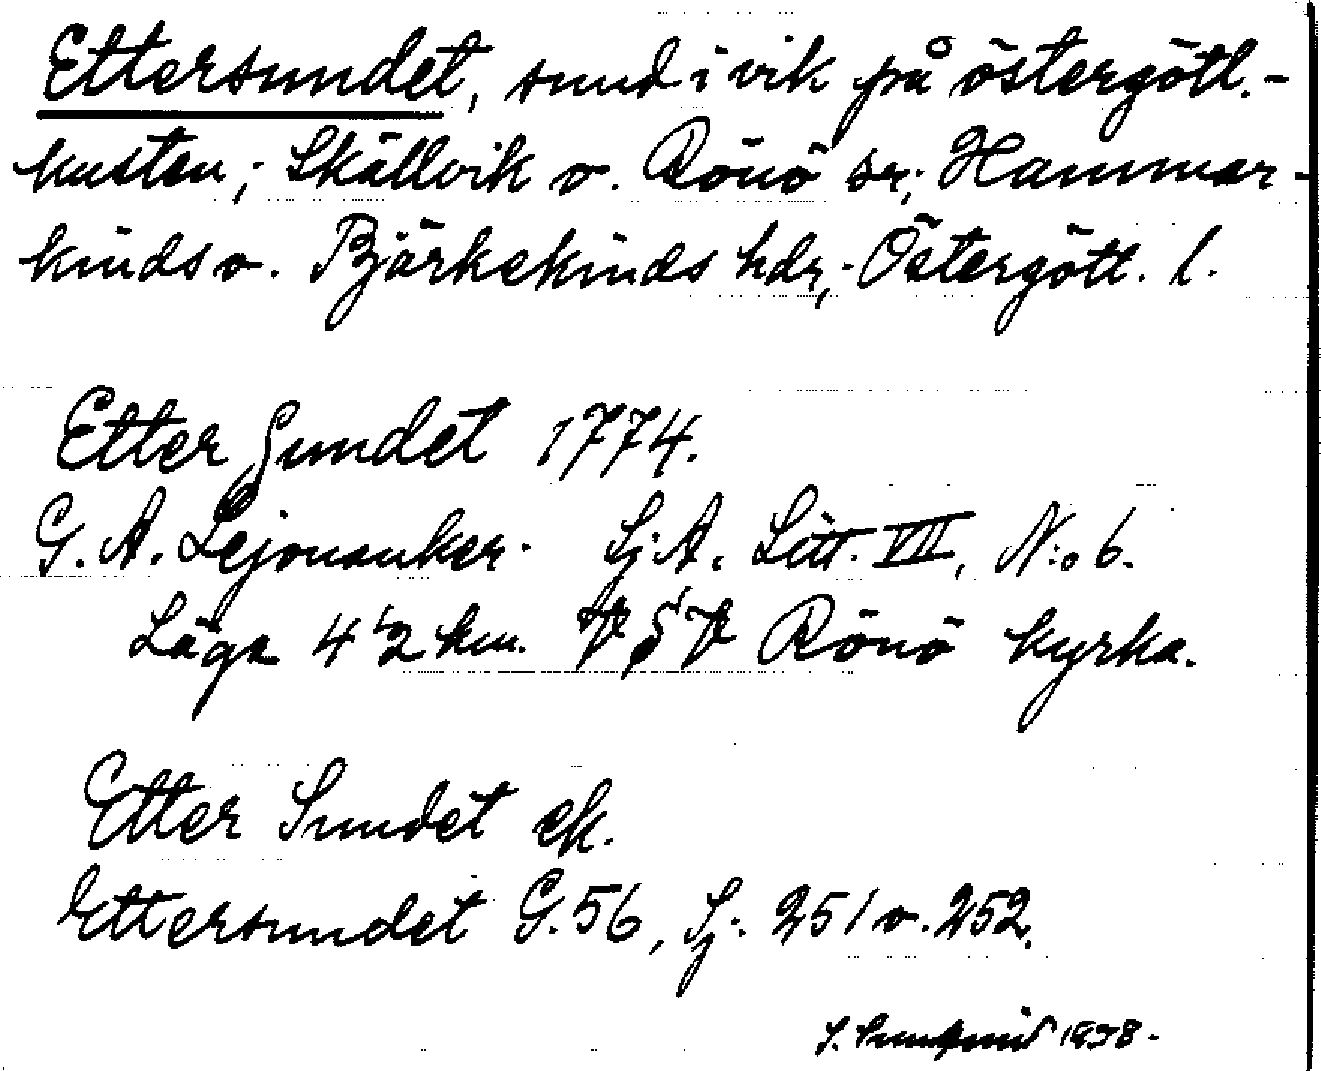 Ettersundet, sund i vik på östergötl.-
kusten; Skällvik o. Rönö snr; Hammar-
kinds o. Björkekinds hdr, Östergötl. l.
Etter Sundet 1774.
G. A. Lejonanker. Sj. A. Litt. VII, N:o 6.
Läge 4 1/2 km. V S V Rönö kyrka.
Etter Sundet ek.
Ettersundet G. 56, Sj. 251 o. 252.
1938.